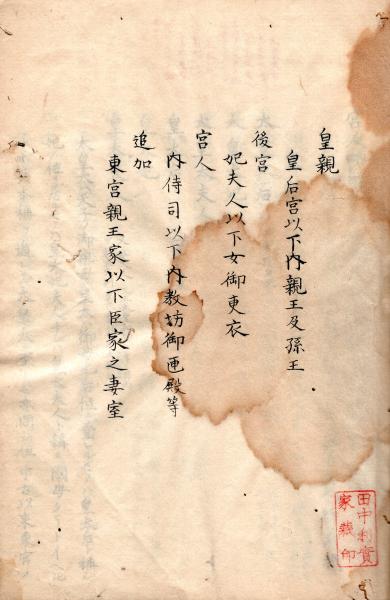 皇親
皇后宮以下内親王及孫王
後宮
妃夫人以下女御更衣
宮人
内侍司以下内教坊御匣殿等
追加
東宮親王家以下臣家之妻室
田中利實
家蔵印